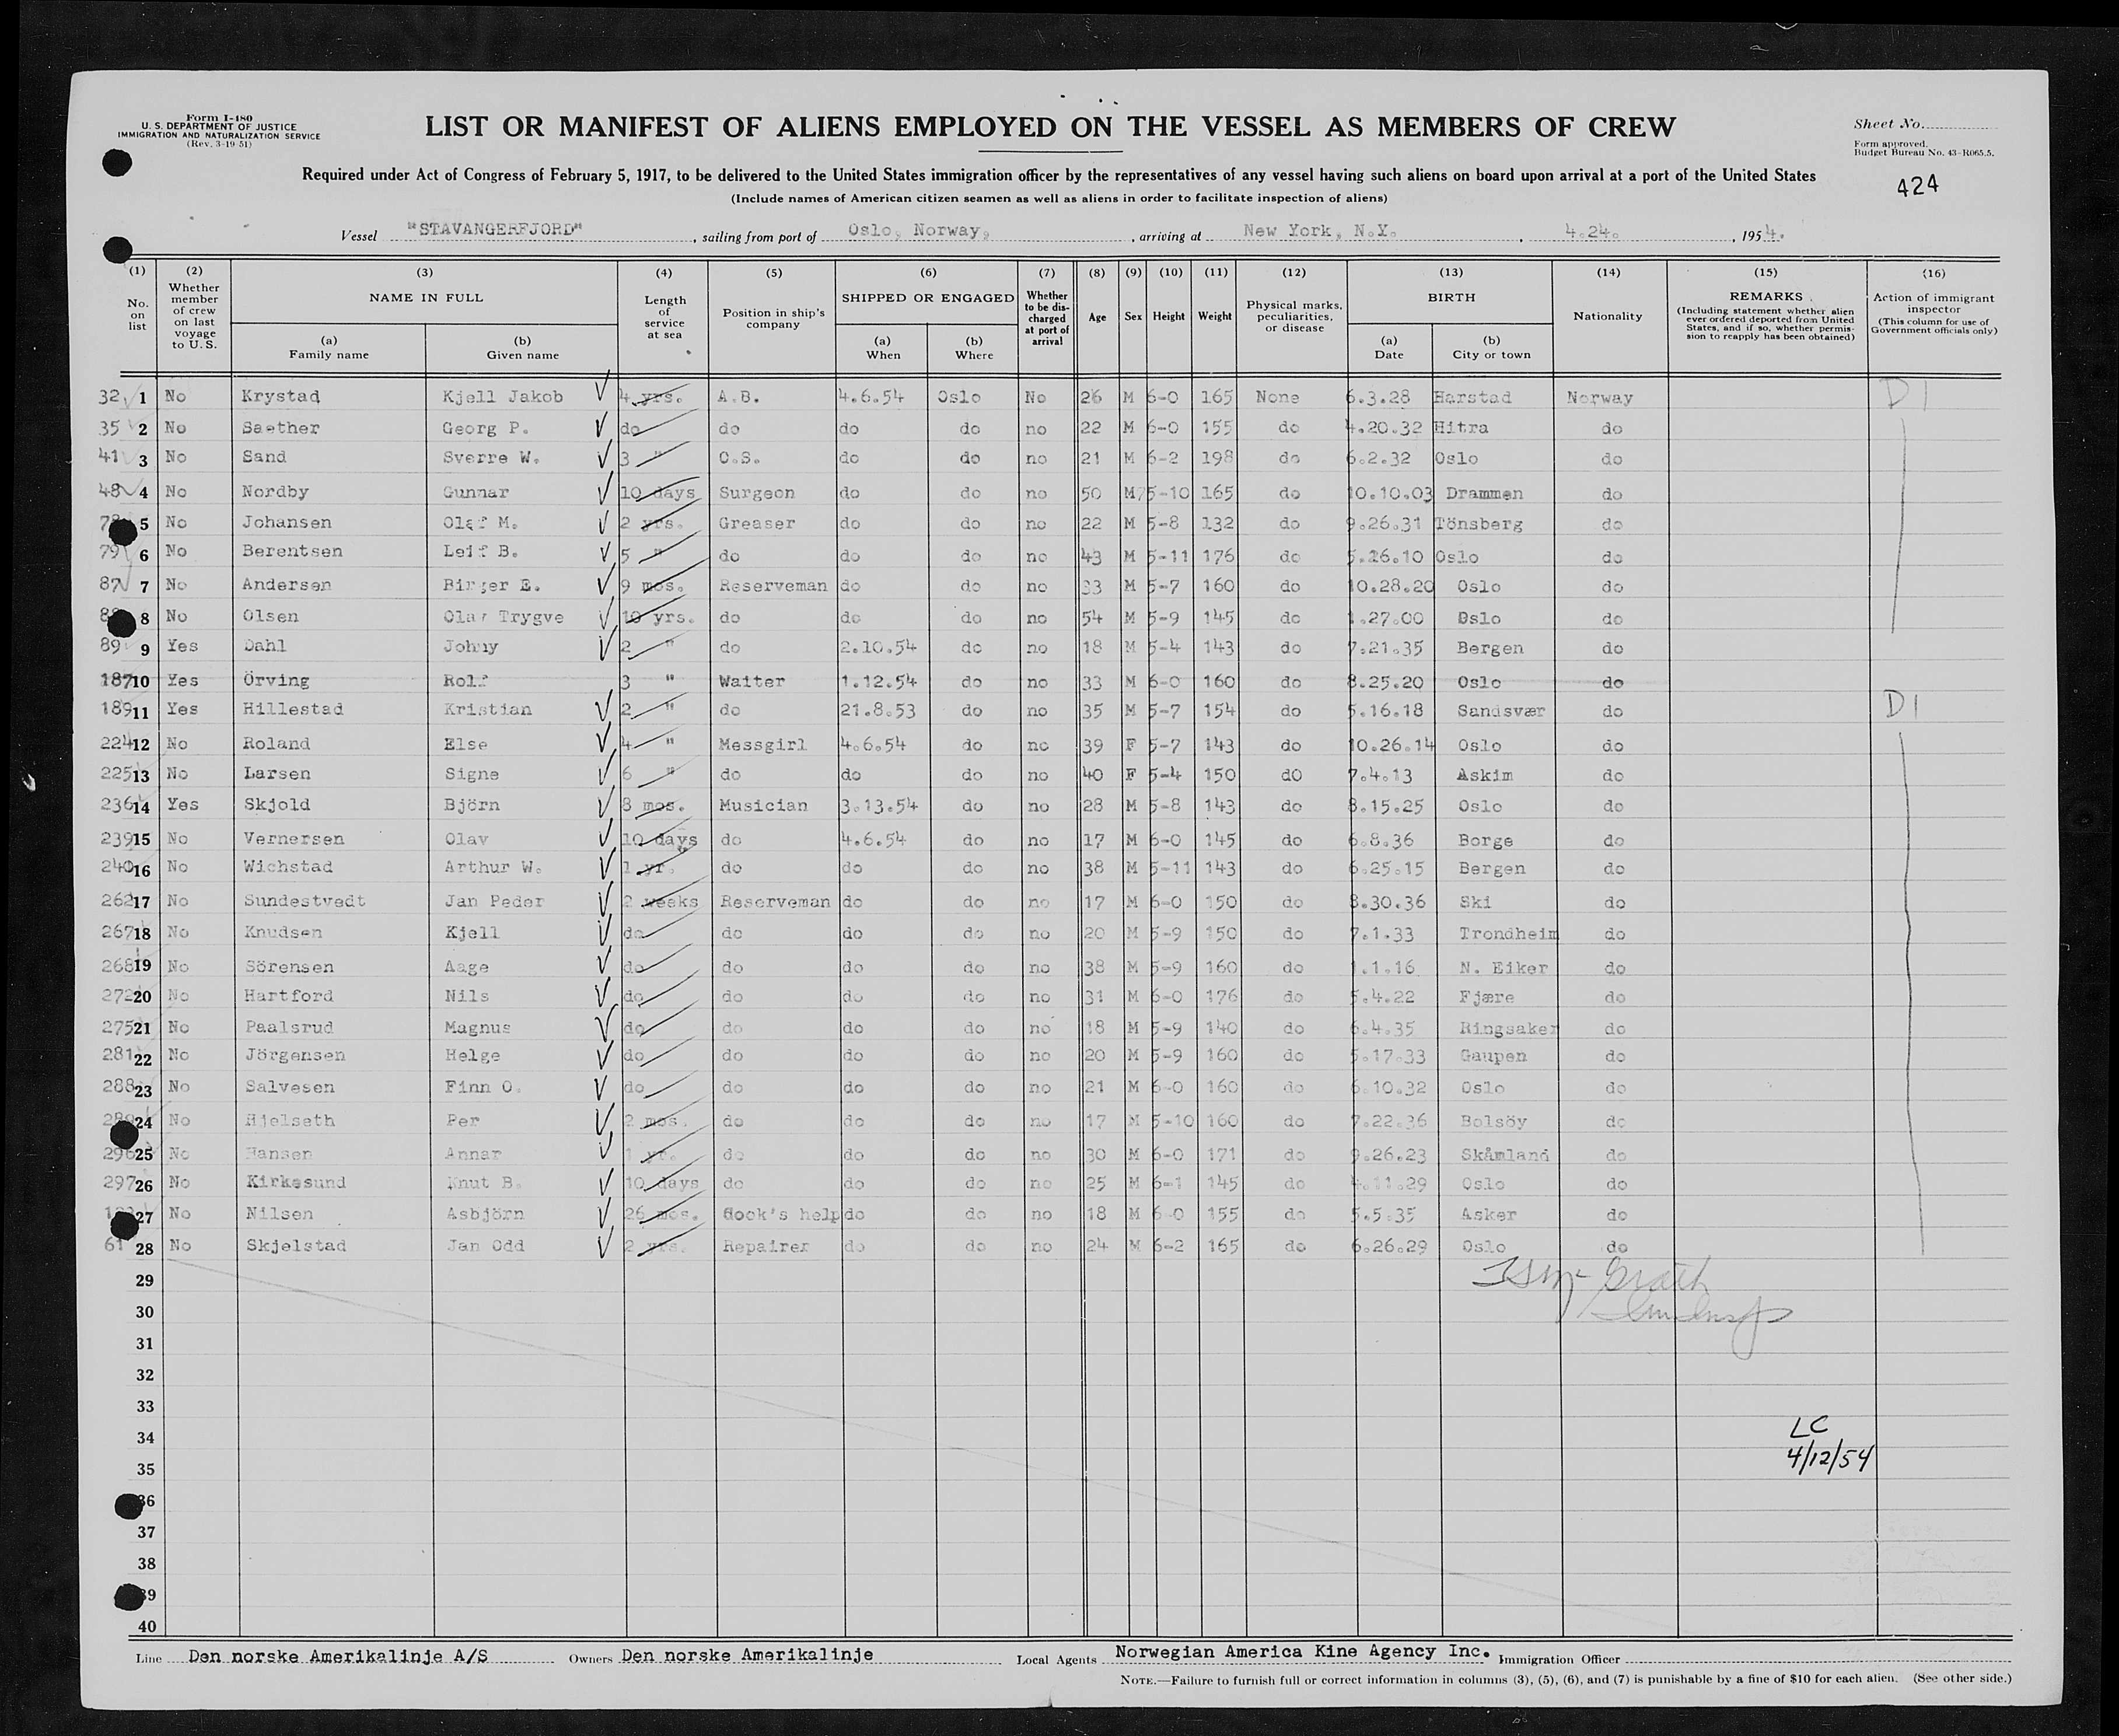 Form I-480
U. S. DEPARTMENT OF JUSTICE
IMMIGRATION AND NATURALIZATION SERVICE
(Rev. 3-19-51)
LIST OR MANIFEST OF ALIENS EMPLOYED ON THE VESSEL AS MEMBERS OF CREW
Sheet No.
Form approved.
Budget Bureau No. 43-R065.5.
Required under Act of Congress of February 5, 1917, to be delivered to the United States immigration officer by the representatives of any vessel having such aliens on board upon arrival at a port of the United States
424
(Include names of American citizen seamen as well as aliens in order to facilitate inspection of aliens)
Vessel "STAVANGERFJORD", sailing from port of Oslo, Norway, , arriving at New York, N.Y. , 4.24. , 1954.
(1) No. on list
(2) Whether member of crew on last voyage to U. S.
(3) NAME IN FULL (a) Family name (b) Given name
(4) Length of service at sea
(5) Position in ship's company
(6) SHIPPED OR ENGAGED (a) When (b) Where
(7) Whether to be discharged at port of arrival
(8) Age
(9) Sex
(10) Height
(11) Weight
(12) Physical marks, peculiarities, or disease
(13) BIRTH (a) Date (b) City or town
(14) Nationality
(15) REMARKS (Including statement whether alien ever ordered deported from United States, and if so, whether permission to reapply has been obtained)
(16) Action of immigrant inspector (This column for use of Government officials only)
32 1 No Krystad Kjell Jakob 4 yrs. A.B. 4.6.54 Oslo No 26 M 6-0 165 None 6.3.28 Harstad Norway D1
35 2 No Saether Georg P. do do do do no 22 M 6-0 155 do 4.20.32 Hitra do
41 3 No Sand Sverre W. 3 " O.S. do do no 21 M 6-2 198 do 6.2.32 Oslo do
48 4 No Nordby Gunnar 10 days Surgeon do do no 50 M 5-10 165 do 10.10.03 Drammen do
5 No Johansen Olaf M. 2 yrs. Greaser do do no 22 M 5-8 132 do 9.26.31 Tönsberg do
79 6 No Berentsen Leif B. 5 " do do do no 43 M 5-11 176 do 5.26.10 Oslo do
87 7 No Andersen Birger E. 9 mos. Reserveman do do no 33 M 5-7 160 do 10.28.20 Oslo do
8 No Olsen Olav Trygve 10 yrs. do do do no 54 M 5-9 145 do 1.27.00 Oslo do
89 9 Yes Dahl Johny 2 " do 2.10.54 do no 18 M 5-4 143 do 7.21.35 Bergen do
187 10 Yes Örving Rolf 3 " Waiter 1.12.54 do no 33 M 6-0 160 do 8.25.20 Oslo do
189 11 Yes Hillestad Kristian 2 " do 21.8.53 do no 35 M 5-7 154 do 5.16.18 Sandsvær do D1
224 12 No Roland Else 4 " Messgirl 4.6.54 do no 39 F 5-7 143 do 10.26.14 Oslo do
225 13 No Larsen Signe 6 " do do do no 40 F 5-4 150 dO 7.4.13 Askim do
236 14 Yes Skjold Björn 8 mos. Musician 3.13.54 do no 28 M 5-8 143 do 8.15.25 Oslo do
239 15 No Vernersen Olav 10 days do 4.6.54 do no 17 M 6-0 145 do 6.8.36 Borge do
240 16 No Wichstad Arthur W. 1 yr. do do do no 38 M 5-11 143 do 6.25.15 Bergen do
262 17 No Sundestvedt Jan Peder 2 weeks Reserveman do do no 17 M 6-0 150 do 8.30.36 Ski do
267 18 No Knudsen Kjell do do do do no 20 M 5-9 150 do 7.1.33 Trondheim do
268 19 No Sörensen Aage do do do do no 38 M 5-9 160 do 1.1.16 N. Eiker do
272 20 No Hartford Nils do do do do no 31 M 6-0 176 do 5.4.22 Fjære do
275 21 No Paalsrud Magnus do do do do no 18 M 5-9 140 do 6.4.35 Ringsaker do
281 22 No Jörgensen Helge do do do do no 20 M 5-9 160 do 5.17.33 Gaupen do
288 23 No Salvesen Finn O. do do do do no 21 M 6-0 160 do 6.10.32 Oslo do
24 No Hjelseth Per 2 mos. do do do no 17 M 5-10 160 do 7.22.36 Bolsöy do
296 25 No Hansen Annar 1 yr. do do do no 30 M 6-0 171 do 9.26.23 Skåmland do
297 26 No Kirkesund Knut B. 10 days do do do no 25 M 6-1 145 do 4.11.29 Oslo do
27 No Nilsen Asbjörn 26 mos. Cook's help do do no 18 M 6-0 155 do 5.5.35 Asker do
61 28 No Skjelstad Jan Odd 2 yrs. Repairer do do no 24 M 6-2 165 do 6.26.29 Oslo do
29
30
31
32
33
34
35
36
37
38
39
40
LC
4/12/54
Line Den norske Amerikalinje A/S Owners Den norske Amerikalinje Local Agents Norwegian America Kine Agency Inc. Immigration Officer
NOTE.—Failure to furnish full or correct information in columns (3), (5), (6), and (7) is punishable by a fine of $10 for each alien. (See other side.)